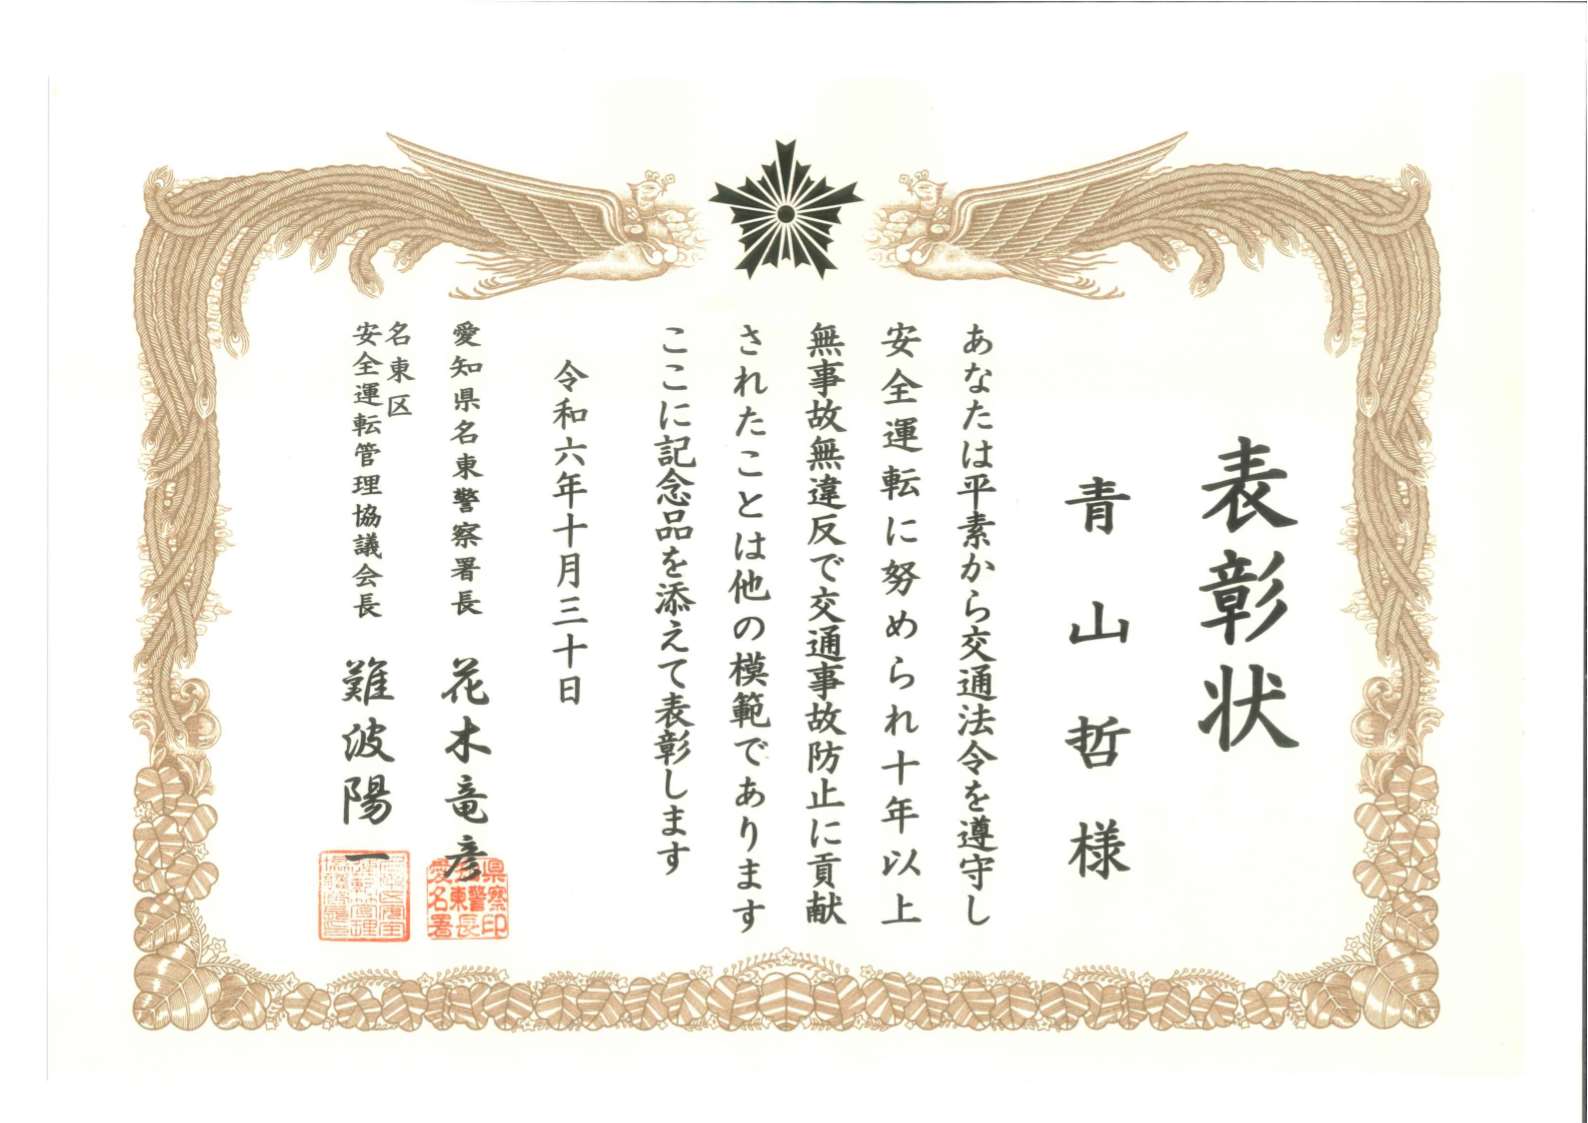 表彰状
青山哲様
あなたは平素から交通法令を遵守し
安全運転に努められ十年以上
無事故無違反で交通事故防止に貢献
されたことは他の模範であります
ここに記念品を添えて表彰します
令和六年十月三十日
愛知県名東警察署長 花木竜彦
名東区
安全運転管理協議会長 難波陽一